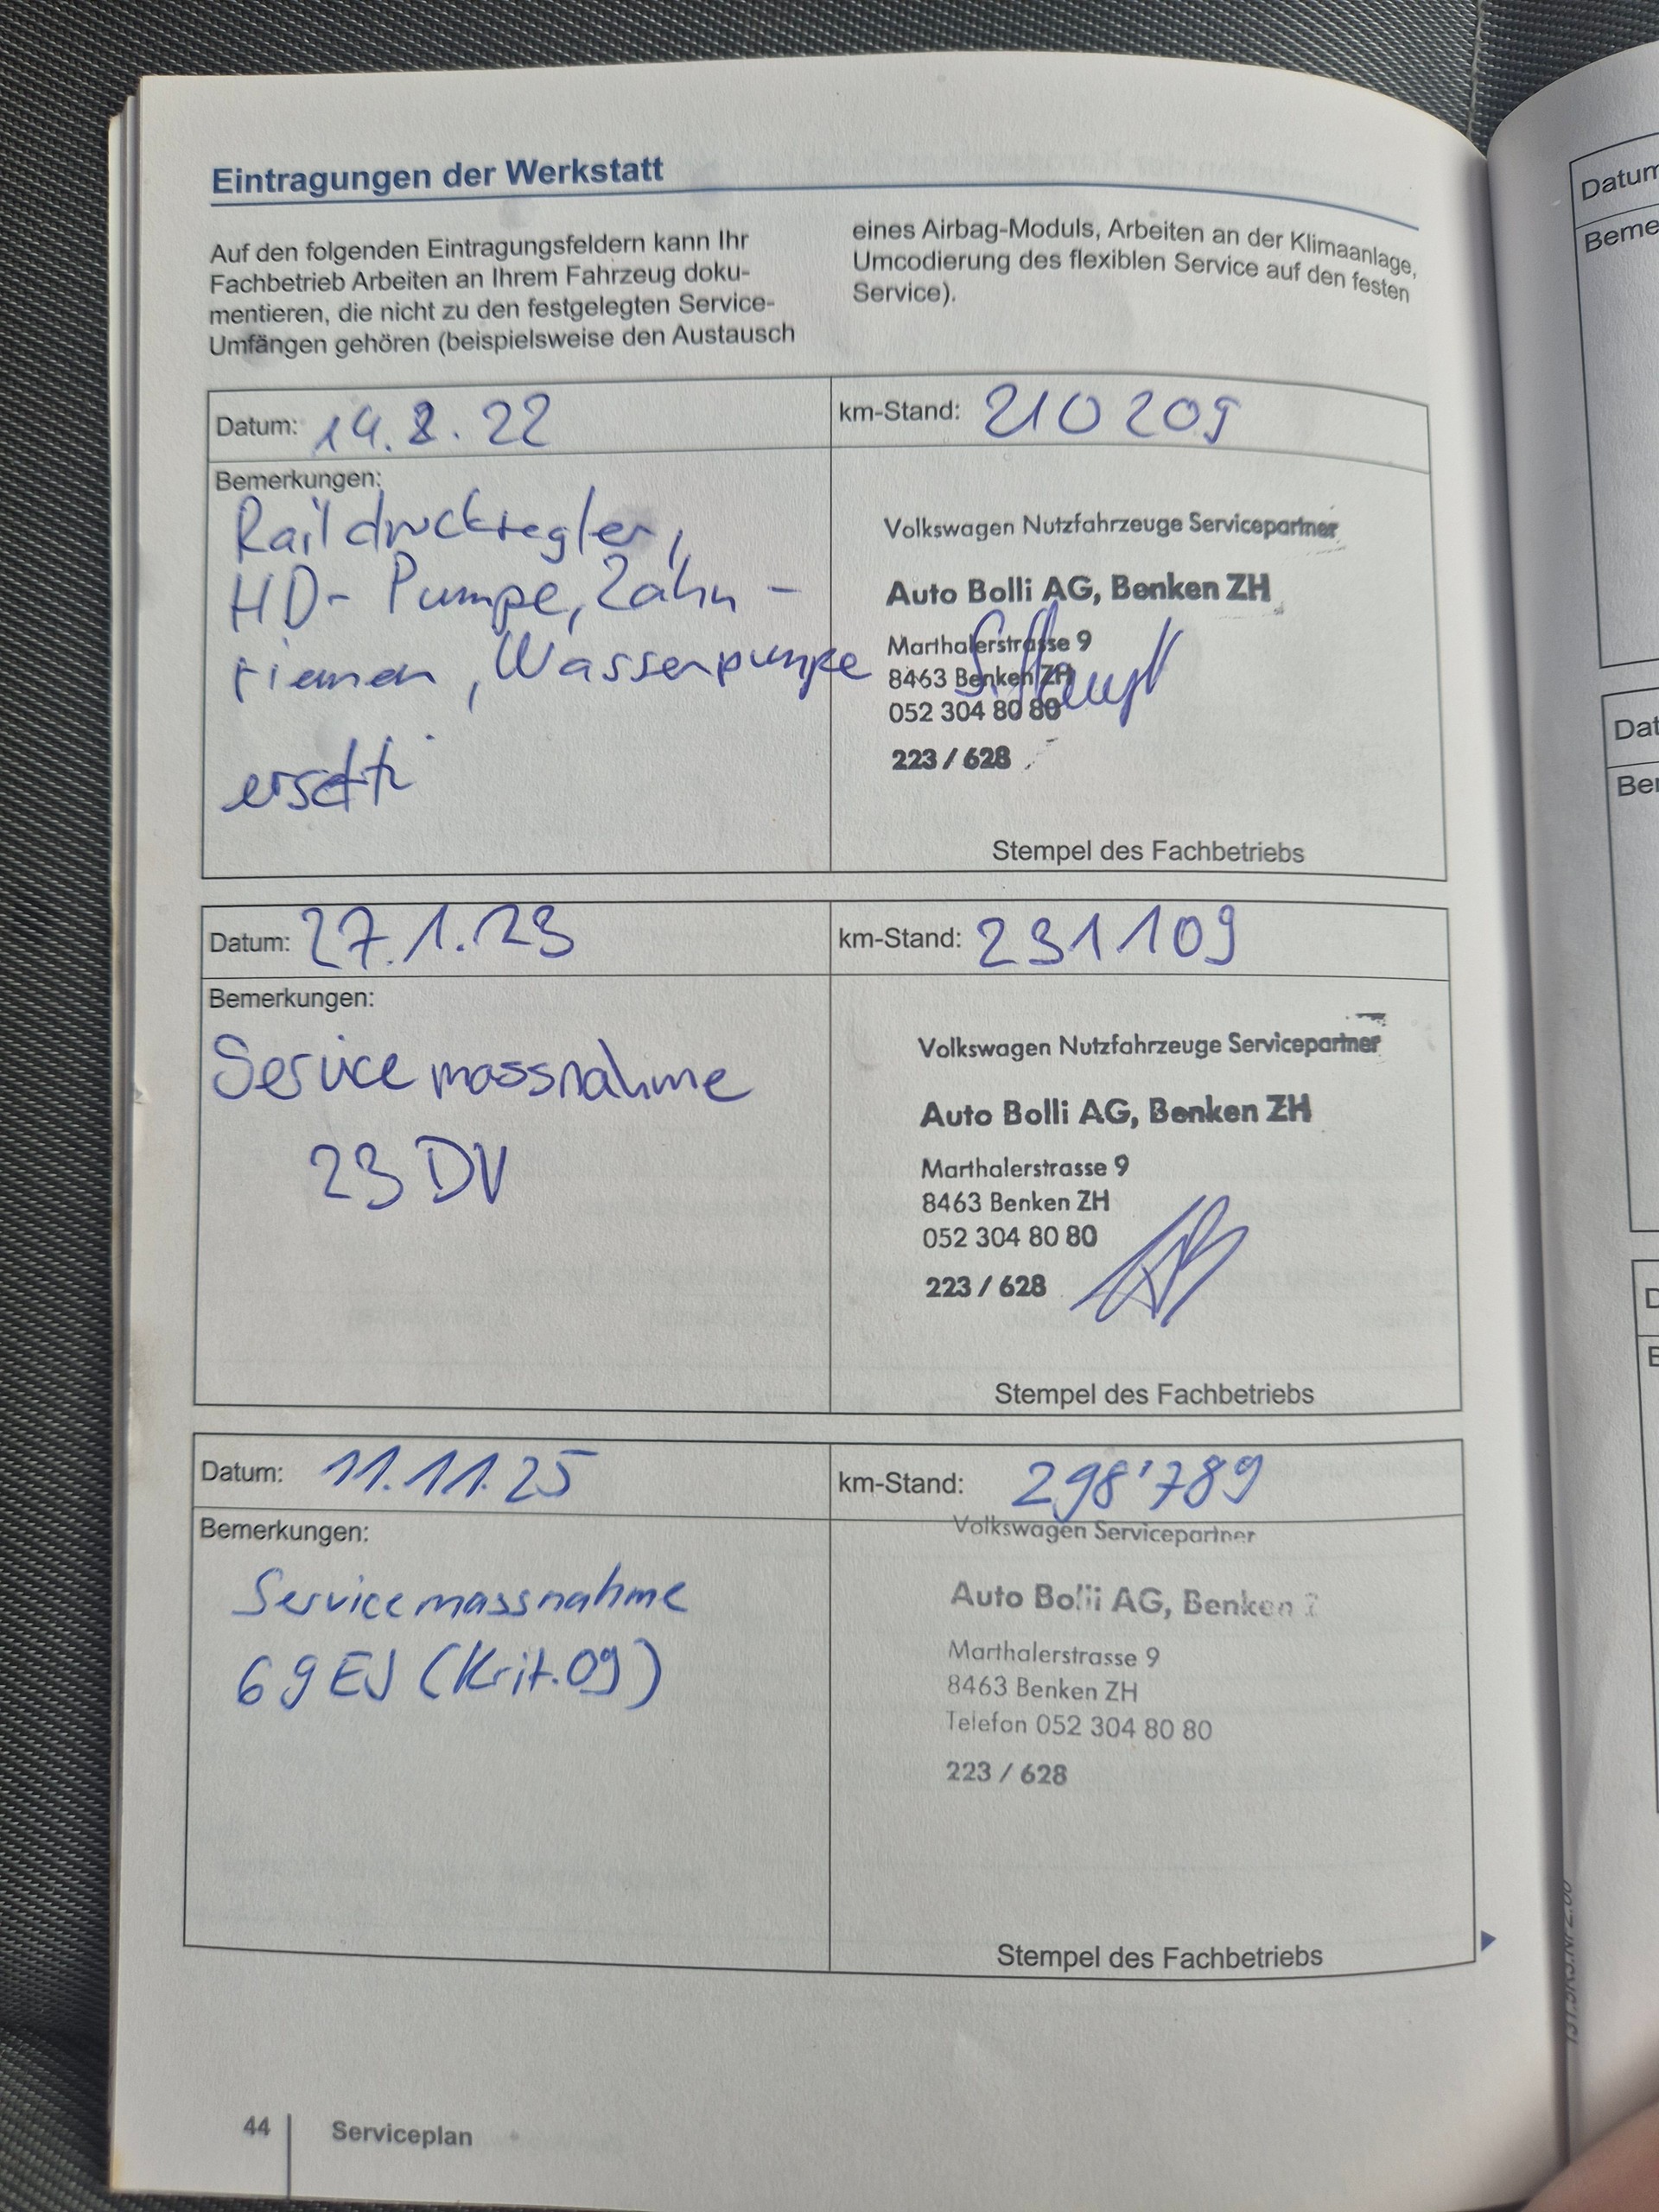 Eintragungen der Werkstatt
Auf den folgenden Eintragungsfeldern kann Ihr
Fachbetrieb Arbeiten an Ihrem Fahrzeug doku-
mentieren, die nicht zu den festgelegten Service-
Umfängen gehören (beispielsweise den Austausch
eines Airbag-Moduls, Arbeiten an der Klimaanlage,
Umcodierung des flexiblen Service auf den festen
Service).
Datum: 14.2.22
km-Stand: 210 209
Bemerkungen:
Raildruckregler,
HD- Pumpe, Zahn-
riemen, Wasserpumpe
ersetzt
Volkswagen Nutzfahrzeuge Servicepartner
Auto Bolli AG, Benken ZH
Marthalerstrasse 9
8463 Benken ZH
052 304 80 80
223 / 628
Stempel des Fachbetriebs
Datum: 27.1.23
km-Stand: 231109
Bemerkungen:
Servicemassnahme
23 DV
Volkswagen Nutzfahrzeuge Servicepartner
Auto Bolli AG, Benken ZH
Marthalerstrasse 9
8463 Benken ZH
052 304 80 80
223 / 628
Stempel des Fachbetriebs
Datum: 11.11.25
km-Stand: 298'789
Bemerkungen:
Servicemassnahme
69EJ (Krit.09)
Volkswagen Servicepartner
Auto Bolli AG, Benken
Marthalerstrasse 9
8463 Benken ZH
Telefon 052 304 80 80
223 / 628
Stempel des Fachbetriebs
44
Serviceplan
Datum
Beme
Dat
Ber
D
B